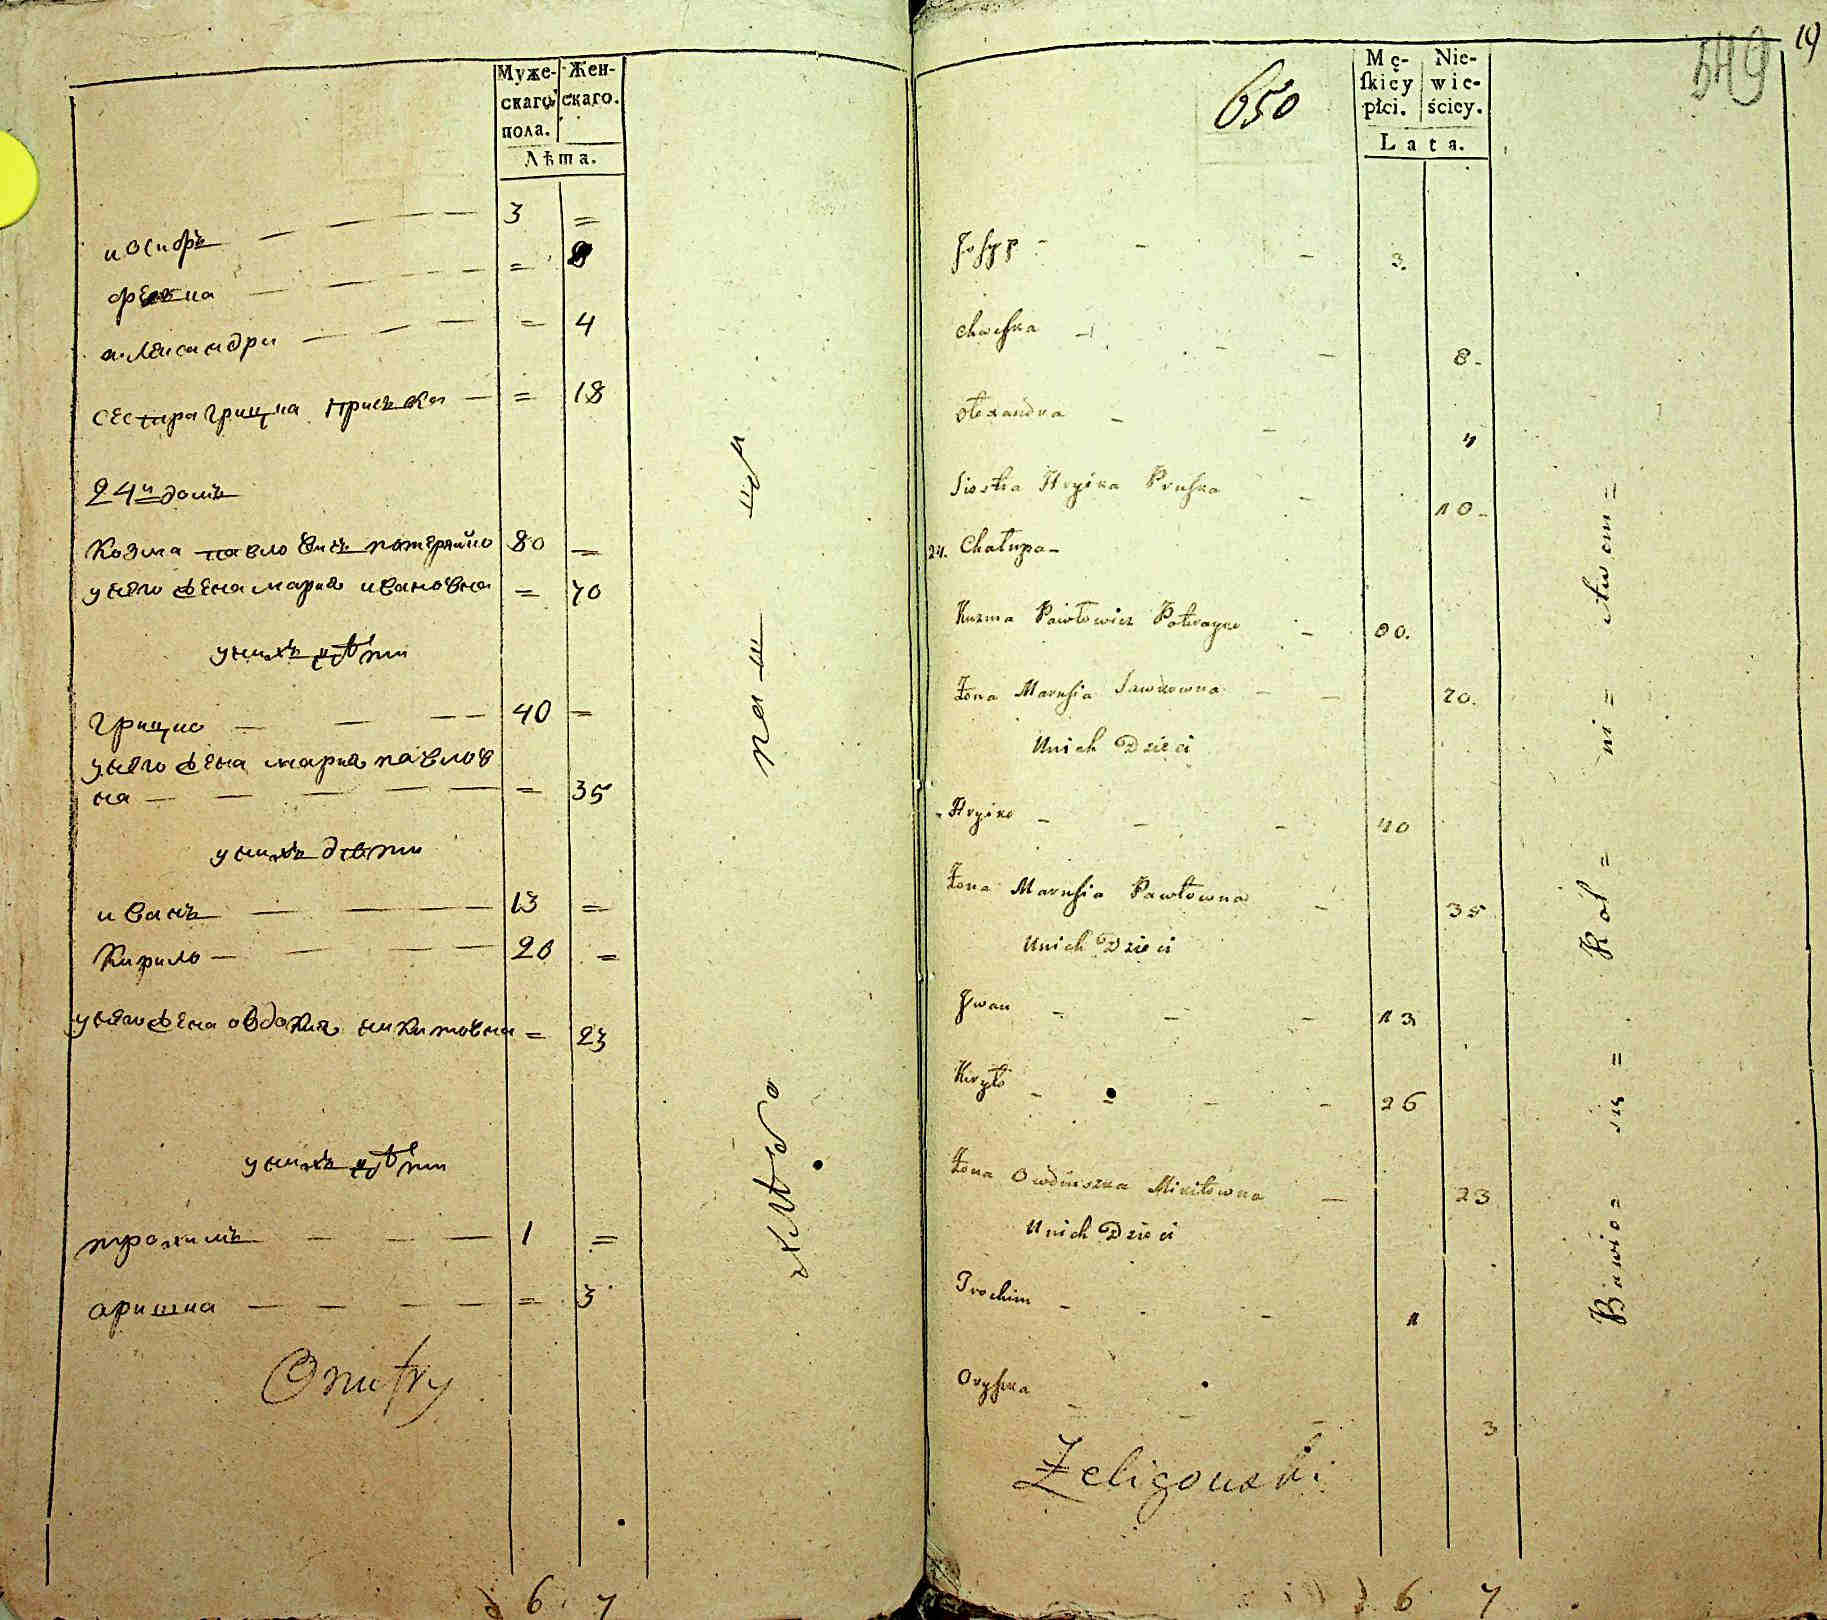 Муже-
скаго
пола.
Жен-
скаго.
Лѣта.
иосифъ 3 =
= 8
александра = 4
сестра грицка приська = 18
24й домъ
Козма павловичъ потерайко 80 =
у него жена мария ивановна = 70
у нихъ дѣти
грицко 40 =
у него жена мария павлов
на = 35
у нихъ дѣти
иванъ 13 =
Кирило 26 =
у него жена овдокия никитовна = 23
у нихъ дѣти
трохимъ 1 =
аришка = 3
Onufry
6 7
19
549
650
Mę-
skiéy
płci.
Nie-
wie-
ściey.
Lata.
Josyp 3.
Chweska 8
Olexandra 4
Siostra Hryćka Pruska 18
24. Chałupa
Kuzma Pawłowicz 80.
Żona Marusia Iwanowna 70.
Unich Dzieci
Hryćko 40
Żona Marusia Pawłowna 35
Unich Dzieci
Iwan 13
Kiryło 26
Żona Mikitowna 23
Unich Dzieci
Trochim 1
Oryszka 3
Żeligowski
6 7